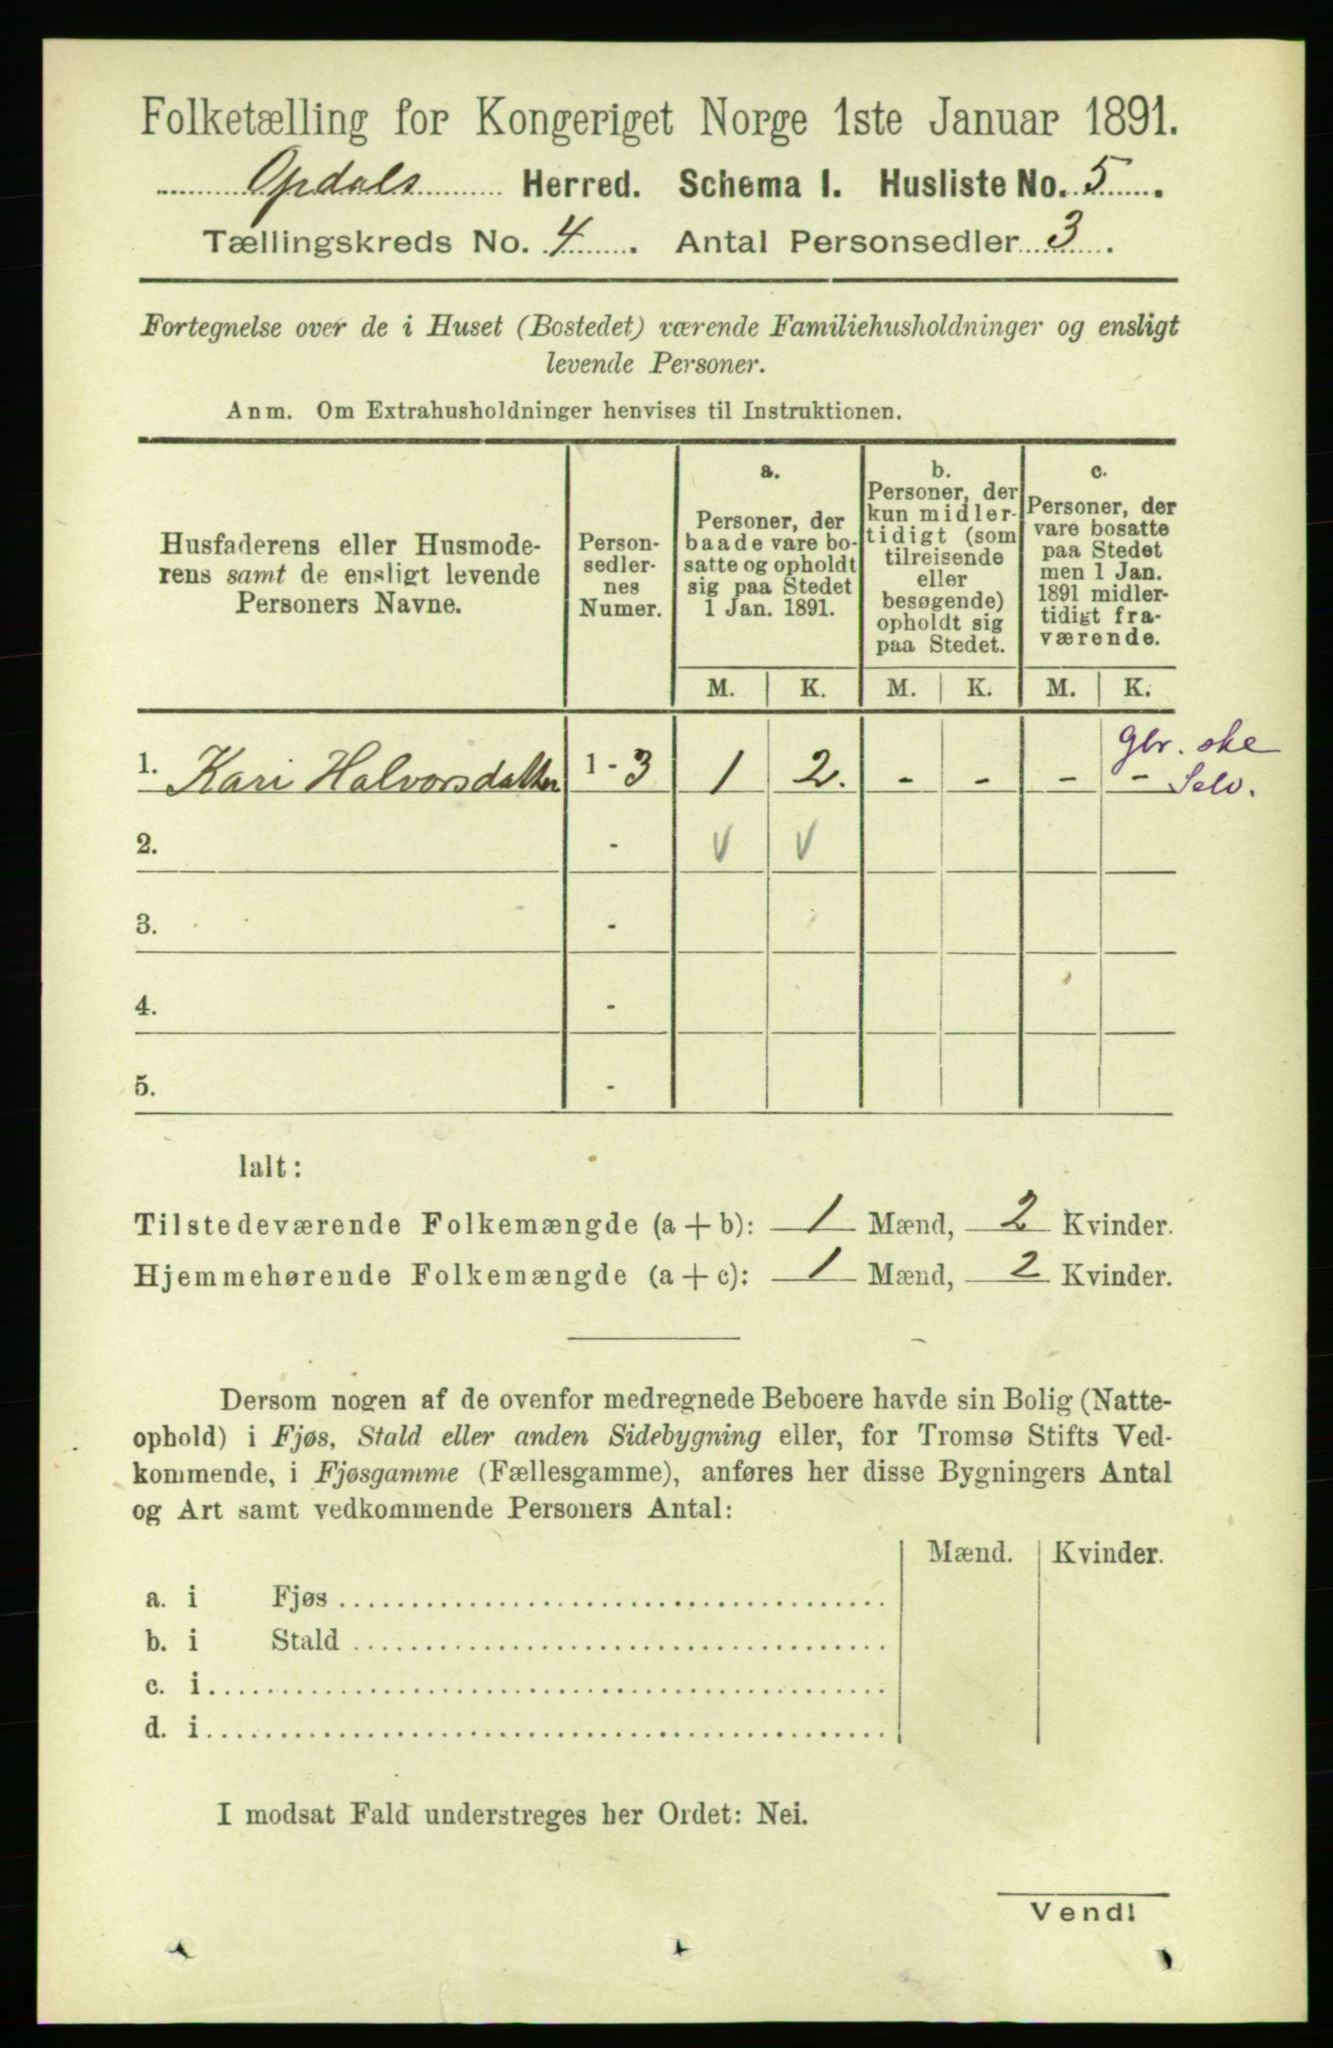 Folketælling for Kongeriget Norge 1ste Januar 1891.
Opdals Herred. Schema I. Husliste No. 5.
Tællingskreds No. 4. Antal Personsedler 3.
Fortegnelse over de i Huset (Bostedet) værende Familiehusholdninger og ensligt
levende Personer.
Anm. Om Extrahusholdninger henvises til Instruktionen.
Husfaderens eller Husmode-
rens samt de ensligt levende
Personers Navne.
Person-
sedler-
nes
Numer.
a.
Personer, der
baade vare bo-
satte og opholdt
sig paa Stedet
1 Jan. 1891.
b.
Personer, der
kun midler-
tidigt (som
tilreisende
eller
besøgende)
opholdt sig
paa Stedet.
c.
Personer, der
vare bosatte
paa Stedet
men 1 Jan.
1891 midler-
tidigt fra-
værende.
M. K. M. K. M. K.
1. Kari Halvorsdatter 1 - 3 1 2. - - - -
Gbr. ske
Selv.
2. - V V
3. -
4. -
5. -
Ialt:
Tilstedeværende Folkemængde (a + b): 1 Mænd, 2 Kvinder.
Hjemmehørende Folkemængde (a + c): 1 Mænd, 2 Kvinder.
Dersom nogen af de ovenfor medregnede Beboere havde sin Bolig (Natte-
ophold) i Fjøs, Stald eller anden Sidebygning eller, for Tromsø Stifts Ved-
kommende, i Fjøsgamme (Fællesgamme), anføres her disse Bygningers Antal
og Art samt vedkommende Personers Antal:
Mænd. Kvinder.
a. i Fjøs
b. i Stald
c. i
d. i
I modsat Fald understreges her Ordet: Nei.
Vend!